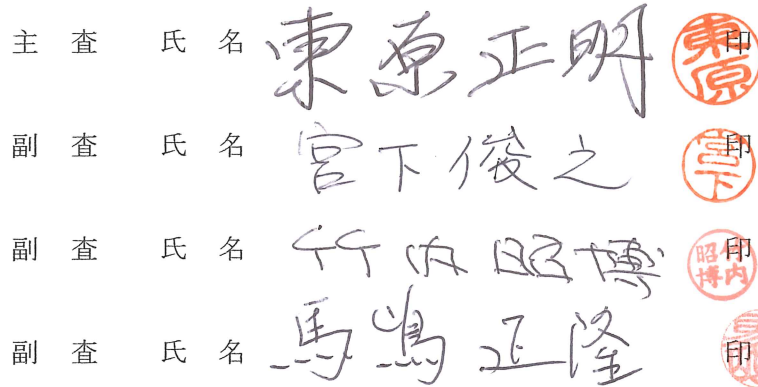 主査 氏名 東原正明 印
副査 氏名 宮下俊之 印
副査 氏名 竹内昭博 印
副査 氏名 馬嶋正隆 印